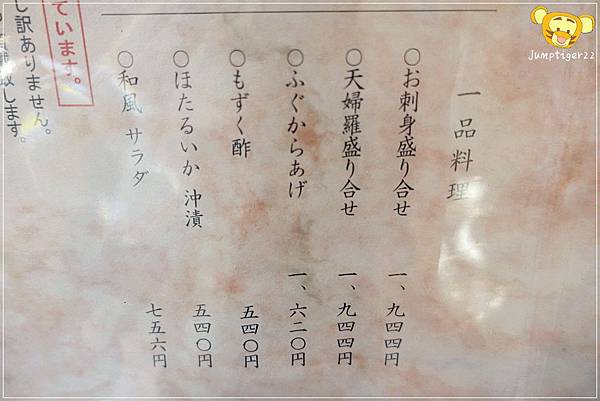 一品料理
〇お刺身盛り合せ 一、九四四円
〇天婦羅盛り合せ 一、九四四円
〇ふぐからあげ 一、六二〇円
〇もずく酢 五四〇円
〇ほたるいか 沖漬 五四〇円
〇和風 サラダ 七五六円
ています。
し訳ありません。
致します。
Jumptiger22